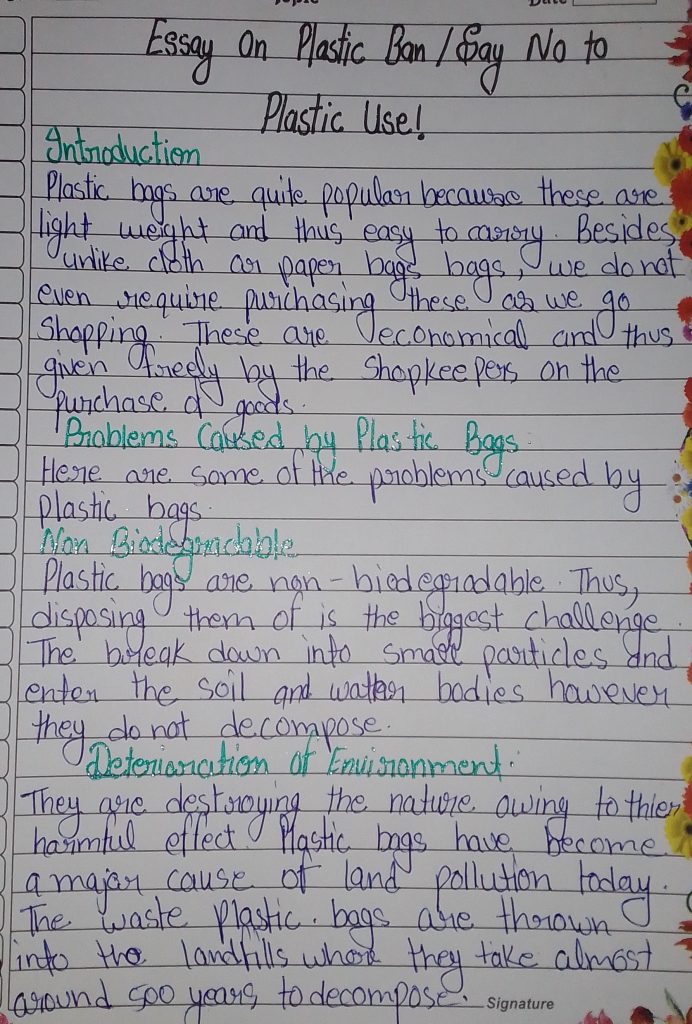 Date
Essay On Plastic Ban / Say No to
Plastic Use!
Introduction
Plastic bags are quite popular because these are
light weight and thus easy to carry. Besides
unlike cloth or paper bags bags, we do not
even require purchasing these as we go
Shopping. These are economical and thus
given freely by the Shopkeepers on the
purchase of goods.
Problems Caused by Plastic Bags.
Here are some of the problems caused by
plastic bags.
Non Biodegradable
Plastic bags are non-biodegradable. Thus,
disposing them of is the biggest challenge.
The break down into small particles and
enter the soil and water bodies however
they do not decompose.
Deterioration of Environment.
They are destroying the nature owing to thier
harmful effect. Plastic bags have become
a major cause of land pollution today.
The waste plastic. bags are thrown
into the landfills where they take almost
around 500 years to decompose.
Signature